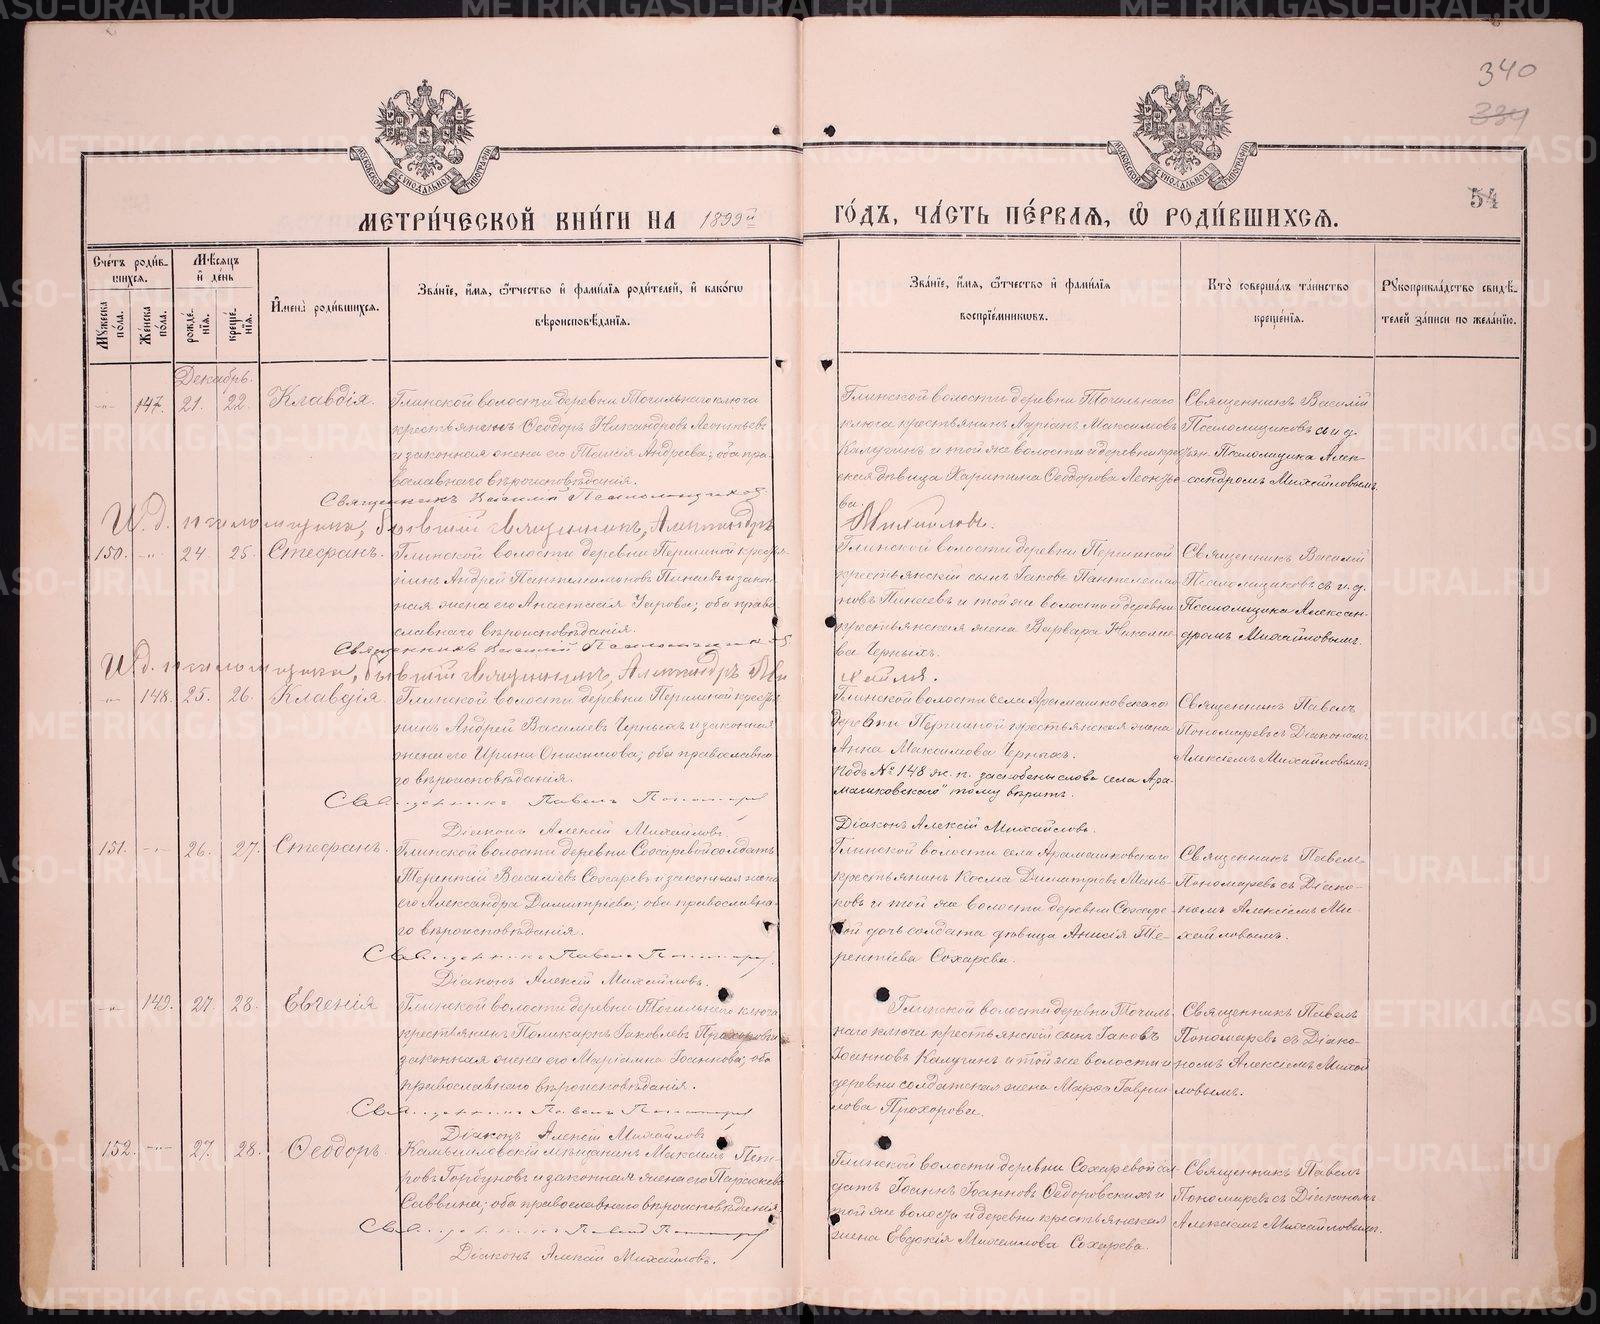 340
334
54
МЕТРИ́ЧЕСКОЙ КНИ́ГИ НА 1899й ГО́ДЪ, ЧА́СТЬ ПЕ́РВАЯ, Ѽ РОДИ́ВШИХСЯ.
Сче́тъ роди́в-
шихся.
Му́жеска по́ла.
Же́нска по́ла.
Мѣ́сяцъ и҆ де́нь
рожде́нїя.
креще́нїя.
И҆мена̀ роди́вшихся.
Зва́нїе, и҆́мя, ѻ҆́тчество и҆ фами́лїя роди́телей, и҆ како́гѡ
вѣроисповѣ́данїя.
Зва́нїе, и҆́мя, ѻ҆́тчество и҆ фами́лїя
воспрїе́мникѡвъ.
Кто̀ соверша́лъ та́инство
креще́нїя.
Рꙋкоприкла́дство свидѣ́-
телей за́писи по жела́нїю.
Декабрь.
147. 21. 22. Клавдія.
Глинской волости деревни Точильнаго ключа
крестьянинъ Ѳеодоръ Никандровъ Леонтьевъ
и законная жена его Андреева; оба пра-
вославнаго вѣроисповѣданія.
Священникъ Василій Псаломщиковъ
И. д. псаломщика, бывшій священникъ, Александръ
Глинской волости деревни Точильнаго
ключа крестьянинъ Максимовъ
Калугинъ и той же волости и деревни кре-
дѣвица Харитина Ѳеодорова Леонтье-
ва.
Михайловъ.
Священникъ Василій
Псаломщиковъ съ и. д.
Псаломщика Алек-
сандромъ Михайловымъ.
150. 24. 25. Стефанъ.
Глинской волости деревни Першиной кресть-
янинъ Андрей Пантелеимоновъ Пинаевъ и закон-
ная жена его Анастасія; оба право-
славнаго вѣроисповѣданія.
Священникъ Василій Псаломщиковъ
И. д. псаломщика, бывшій священникъ, Александръ Ми-
Глинской волости деревни Першиной
крестьянскій сынъ Іаковъ Пантелеимо-
новъ Пинаевъ и той же волости и деревни
крестьянская жена Варвара Николае-
ва Черныхъ.
Священникъ Василій
Псаломщиковъ съ и. д.
Псаломщика Алексан-
дромъ Михайловымъ.
148. 25. 26. Клавдія.
Глинской волости деревни Першиной кресть-
нинъ Андрей Василіевъ Черныхъ и законная
жена его Ирина Онисимова; оба православна-
го вѣроисповѣданія.
Священникъ Павелъ Пономаревъ
Діаконъ Алексій Михайловъ.
Глинской волости села Арамашковскаго
деревни Першиной крестьянская жена
Анна Максимова Черныхъ.
Подъ № 148 ж. п. заскобены слова „села Ара-
машковскаго" тому вѣрить.
Діаконъ Алексій Михайловъ.
Священникъ Павелъ
Пономаревъ съ Діакономъ
Алексіемъ Михайловымъ.
151. 26. 27. Стефанъ.
Глинской волости деревни Сохаревой солдатъ
Терентій Василіевъ Сохаревъ и законная жена
его Александра Димитріева; оба православна-
го вѣроисповѣданія.
Священникъ Павелъ Пономаревъ
Діаконъ Алексій Михайловъ.
Глинской волости села Арамашковскаго
крестьянинъ Косма Димитріевъ Мань-
ковъ и той же волости деревни Сохаре-
вой дочь солдата дѣвица Анисія Те-
рентіева Сохарева.
Священникъ Павелъ
Пономаревъ съ Діако-
номъ Алексіемъ Ми-
хайловымъ.
149. 27. 28. Евгенія
Глинской волости деревни Точильнаго ключа
крестьянинъ Поликарпъ Іаковлевъ Прохоровъ и
законная жена его Маріамна Іоаннова; оба
православнаго вѣроисповѣданія.
Священникъ Павелъ Пономаревъ
Діаконъ Алексій Михайловъ
Глинской волости деревни Точиль-
наго ключа крестьянскій сынъ Іаковъ
Іоанновъ Калугинъ и той же волости и
деревни солдатская жена Марѳа Гаврии-
лова Прохорова.
Священникъ Павелъ
Пономаревъ съ Діако-
номъ Алексіемъ Михай-
ловымъ.
152. 27. 28. Ѳеодоръ.
Камышловскій мѣщанинъ Максимъ Пет-
ровъ Горбуновъ и законная жена его Параскева
Саввина; оба православнаго вѣроисповѣданія
Священникъ Павелъ Пономаревъ
Діаконъ Алексій Михайловъ.
Глинской волости деревни Сохаревой сол-
датъ Іоаннъ Іоанновъ Ѳедоровскихъ и
той же волости и деревни крестьянская
жена Евдокія Михаилова Сохарева.
Священникъ Павелъ
Пономаревъ съ Діакономъ
Алексіемъ Михайловымъ.
METRIKI.GASO-URAL.RU